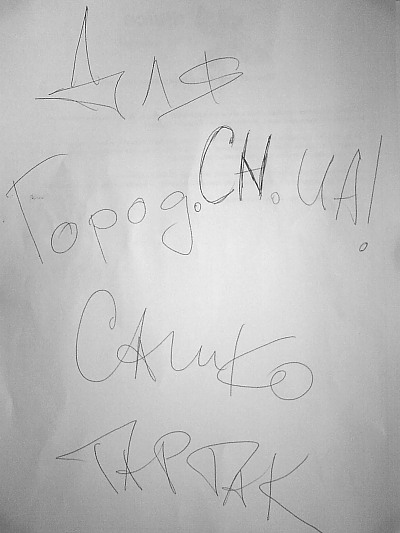 Для
Город.CN.UA!
САшКо
ТАРТАК